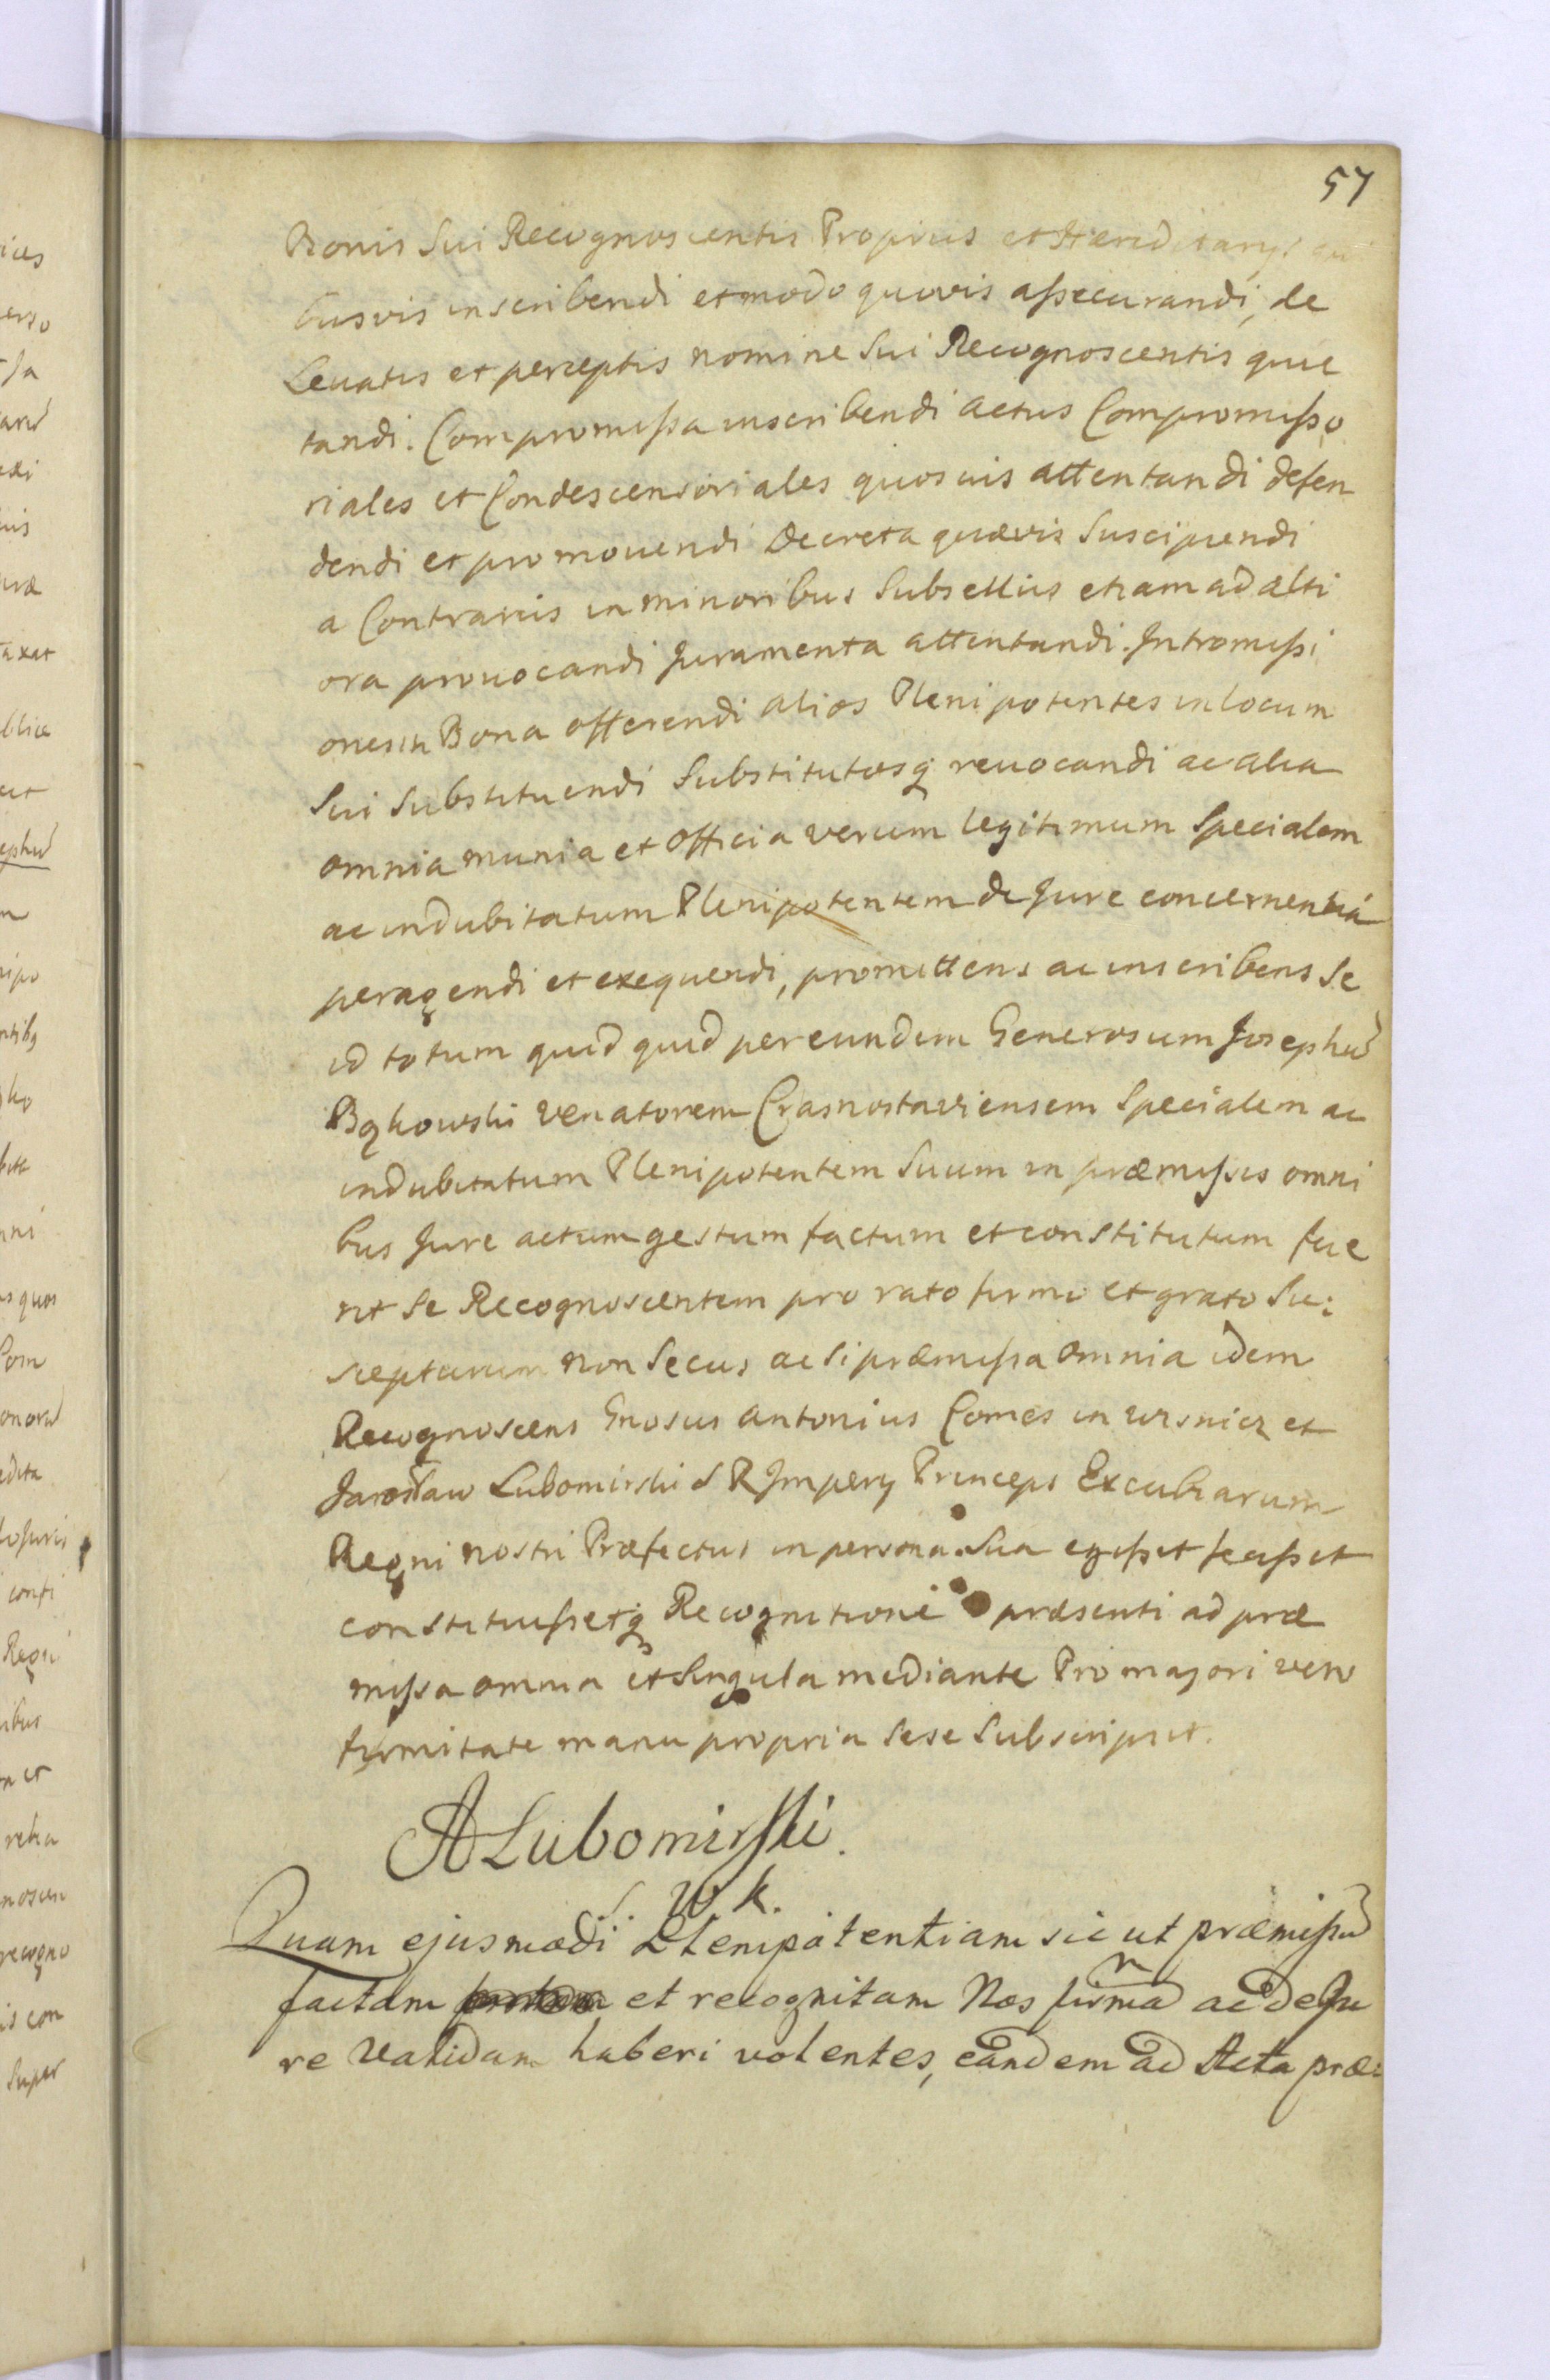 57
Bonis Sui Recognoscentis Propriis et Hæreditarys qui
busvis inscribendi et modo quovis assecurandi, de
Levatis et perceptis nomine Sui Recognoscentis quie
tandi. Compromissa inscribendi actus Compromisso
riales et Condescensoriales quosvis attentandi defen
dendi et promouendi Decreta quævis Suscipiendi
a Contrariis in minoribus Subselliis etiam ad alti
ora prouocandi Juramenta attentandi. Intromissi
ones in Bona offerendi alios Plenipotentes in locum
Sui Substituendi Substitutosq revocandi ac alia
omnia munia et officia verum legitimum Specialem
ac indubitatum Plenipotentem de Jure concernentia
peragendi et exequendi, promittens ac inscribens Se
id totum quid quid per eundem Generosum Josephu
Bąkowski Venatorem Crasnostaviensem Specialem ac
indubitatum Plenipotentem Suum in præmissis omni
bus Jure actum gestum factum et constitutum fue
rit Se Recognoscentem pro rato firmo et grato Su:
scepturum non Secus ac Si præmissa omnia idem
Recognoscens Gnosus Antonius Comes in Wisnicz et
Jarosław Lubomirski S R Impery Princeps Excubiarum
Regni nostri Præfectus in persona Sua egisset fecisset
constituissetq Recognitione præsenti ad præ
missa omnia et Singula mediante Pro majori vero
firmitate manu propria Sese Subscripsit.
A Lubomirski.
S. W k.
Quam ejusmodi Plenipotentiam sic ut præmissu
factam et recognitam Nos firma ac de Ju
re Validam haberi volentes, eandem ad Acta præ: